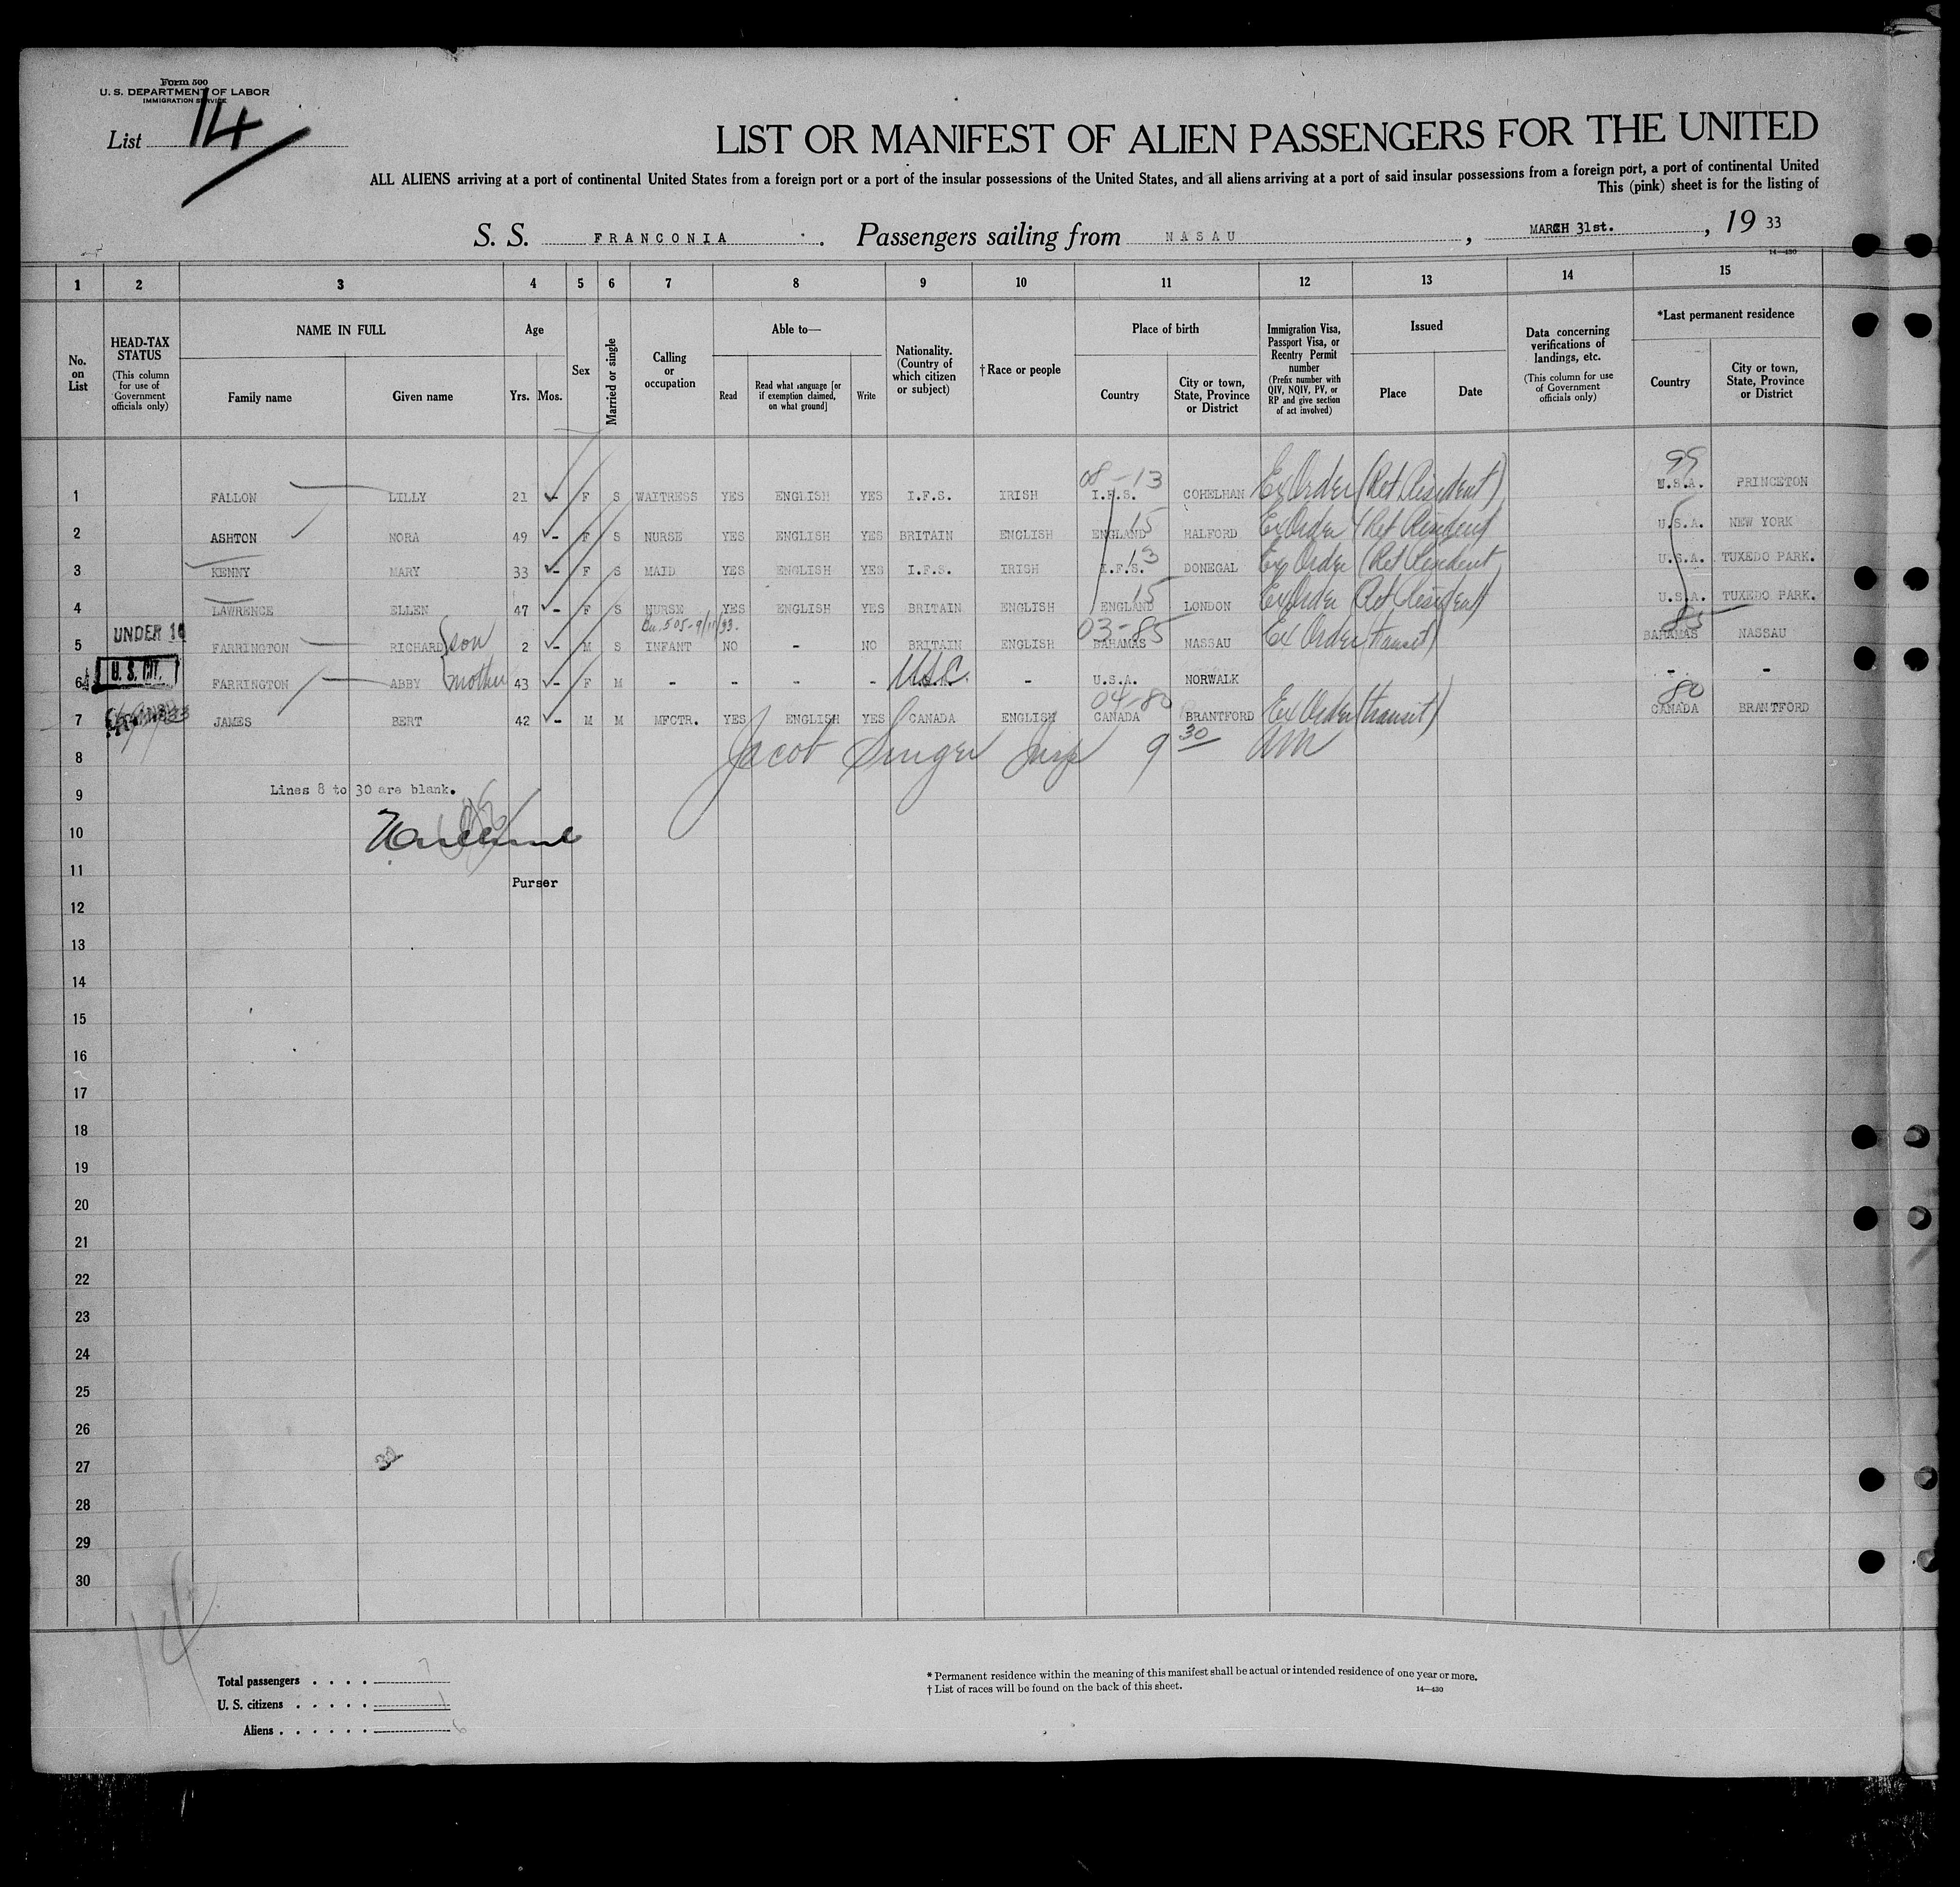 Form 500
U. S. DEPARTMENT OF LABOR
IMMIGRATION SERVICE
List 14
LIST OR MANIFEST OF ALIEN PASSENGERS FOR THE UNITED
ALL ALIENS arriving at a port of continental United States from a foreign port or a port of the insular possessions of the United States, and all aliens arriving at a port of said insular possessions from a foreign port, a port of continental United
This (pink) sheet is for the listing of
S. S. FRANCONIA. Passengers sailing from NASAU, MARCH 31st., 19 33
14—430
1 2 3 4 5 6 7 8 9 10 11 12 13 14 15
No. on List
HEAD-TAX STATUS (This column for use of Government officials only)
NAME IN FULL Family name Given name
Age Yrs. Mos.
Sex
Married or single
Calling or occupation
Able to— Read Read what language [or if exemption claimed, on what ground] Write
Nationality. (Country of which citizen or subject)
†Race or people
Place of birth Country City or town, State, Province or District
Immigration Visa, Passport Visa, or Reentry Permit number (Prefix number with QIV, NQIV, PV, or RP and give section of act involved)
Issued Place Date
Data concerning verifications of landings, etc. (This column for use of Government officials only)
*Last permanent residence Country City or town, State, Province or District
08-13 99
1 FALLON LILLY 21 - F S WAITRESS YES ENGLISH YES I.F.S. IRISH I.F.S. COHELHAN Ex Order (Ret Resident) U.S.A. PRINCETON
15
2 ASHTON NORA 49 - F S NURSE YES ENGLISH YES BRITAIN ENGLISH ENGLAND HALFORD Ex Order (Ret Resident U.S.A. NEW YORK
13
3 KENNY MARY 33 - F S MAID YES ENGLISH YES I.F.S. IRISH I.F.S. DONEGAL Ex Order (Ret Resident U.S.A. TUXEDO PARK.
15
4 LAWRENCE ELLEN 47 - F S NURSE YES ENGLISH YES BRITAIN ENGLISH ENGLAND LONDON Ex Order (Ret Resident) U.S.A. TUXEDO PARK.
505-9/11/33. 03-85 85
UNDER 16
5 FARRINGTON RICHARD son 2 - M S INFANT NO - NO BRITAIN ENGLISH BAHAMAS NASSAU Ex Order (transit) BAHAMAS NASSAU
U. S. CIT.
6 FARRINGTON ABBY mother 43 - F M - - - - U.S.C. - U.S.A. NORWALK - -
04-80 80
7 JAMES BERT 42 - M M MFCTR. YES ENGLISH YES CANADA ENGLISH CANADA BRANTFORD Ex Order (transit) CANADA BRANTFORD
8 Jacob Singer Insp 9 30 AM
9 Lines 8 to 30 are blank.
10
11 Purser
12
13
14
15
16
17
18
19
20
21
22
23
24
25
26
27
28
29
30
14
Total passengers 7
U. S. citizens 1
Aliens 6
* Permanent residence within the meaning of this manifest shall be actual or intended residence of one year or more.
† List of races will be found on the back of this sheet.
14—430